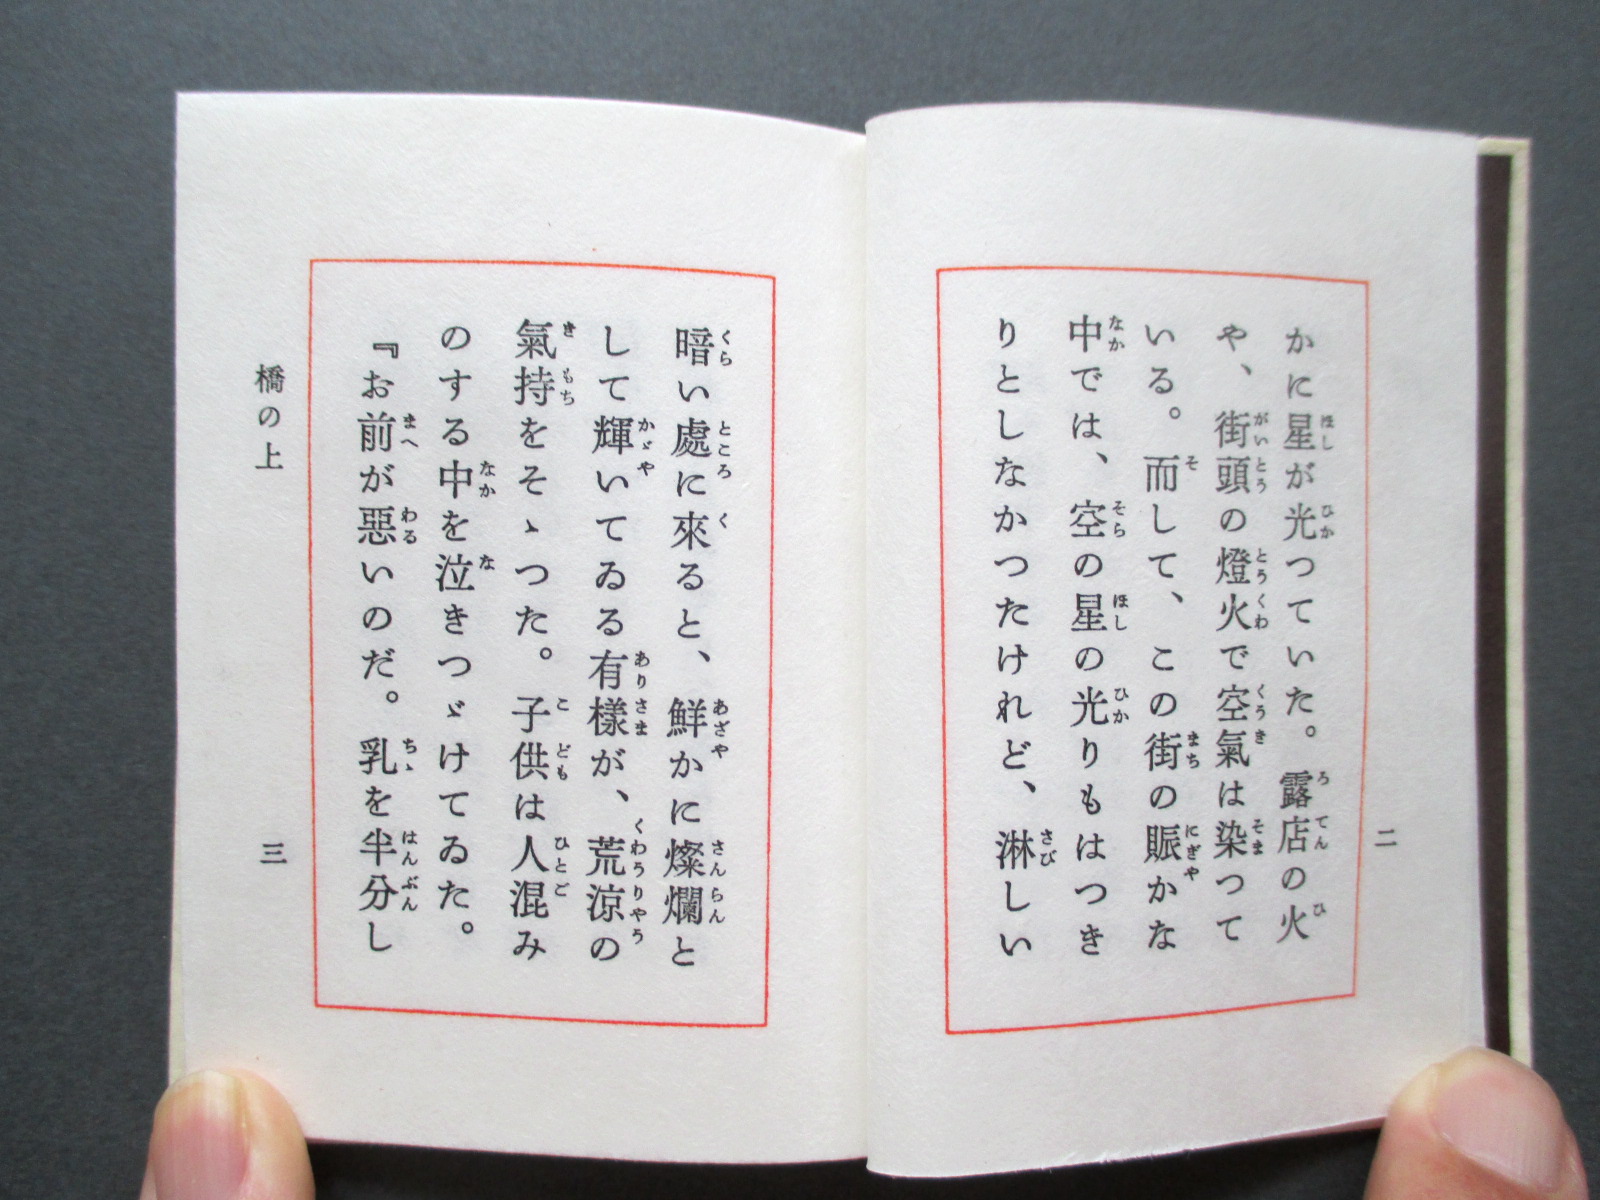 二
かに星が光つていた。露店の火
や、街頭の燈火で空氣は染つて
いる。而して、この街の賑かな
中では、空の星の光りもはつき
りとしなかつたけれど、淋しい
暗い處に來ると、鮮かに燦爛と
して輝いてゐる有樣が、荒涼の
氣持をそゝつた。子供は人混み
のする中を泣きつゞけてゐた。
『お前が惡いのだ。乳を半分し
橋の上
三